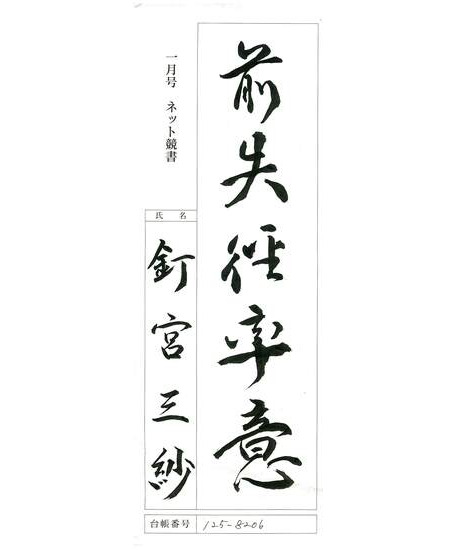 前失徑率意
一月号 ネット競書
氏名
釘宮三紗
台帳番号 125-8206